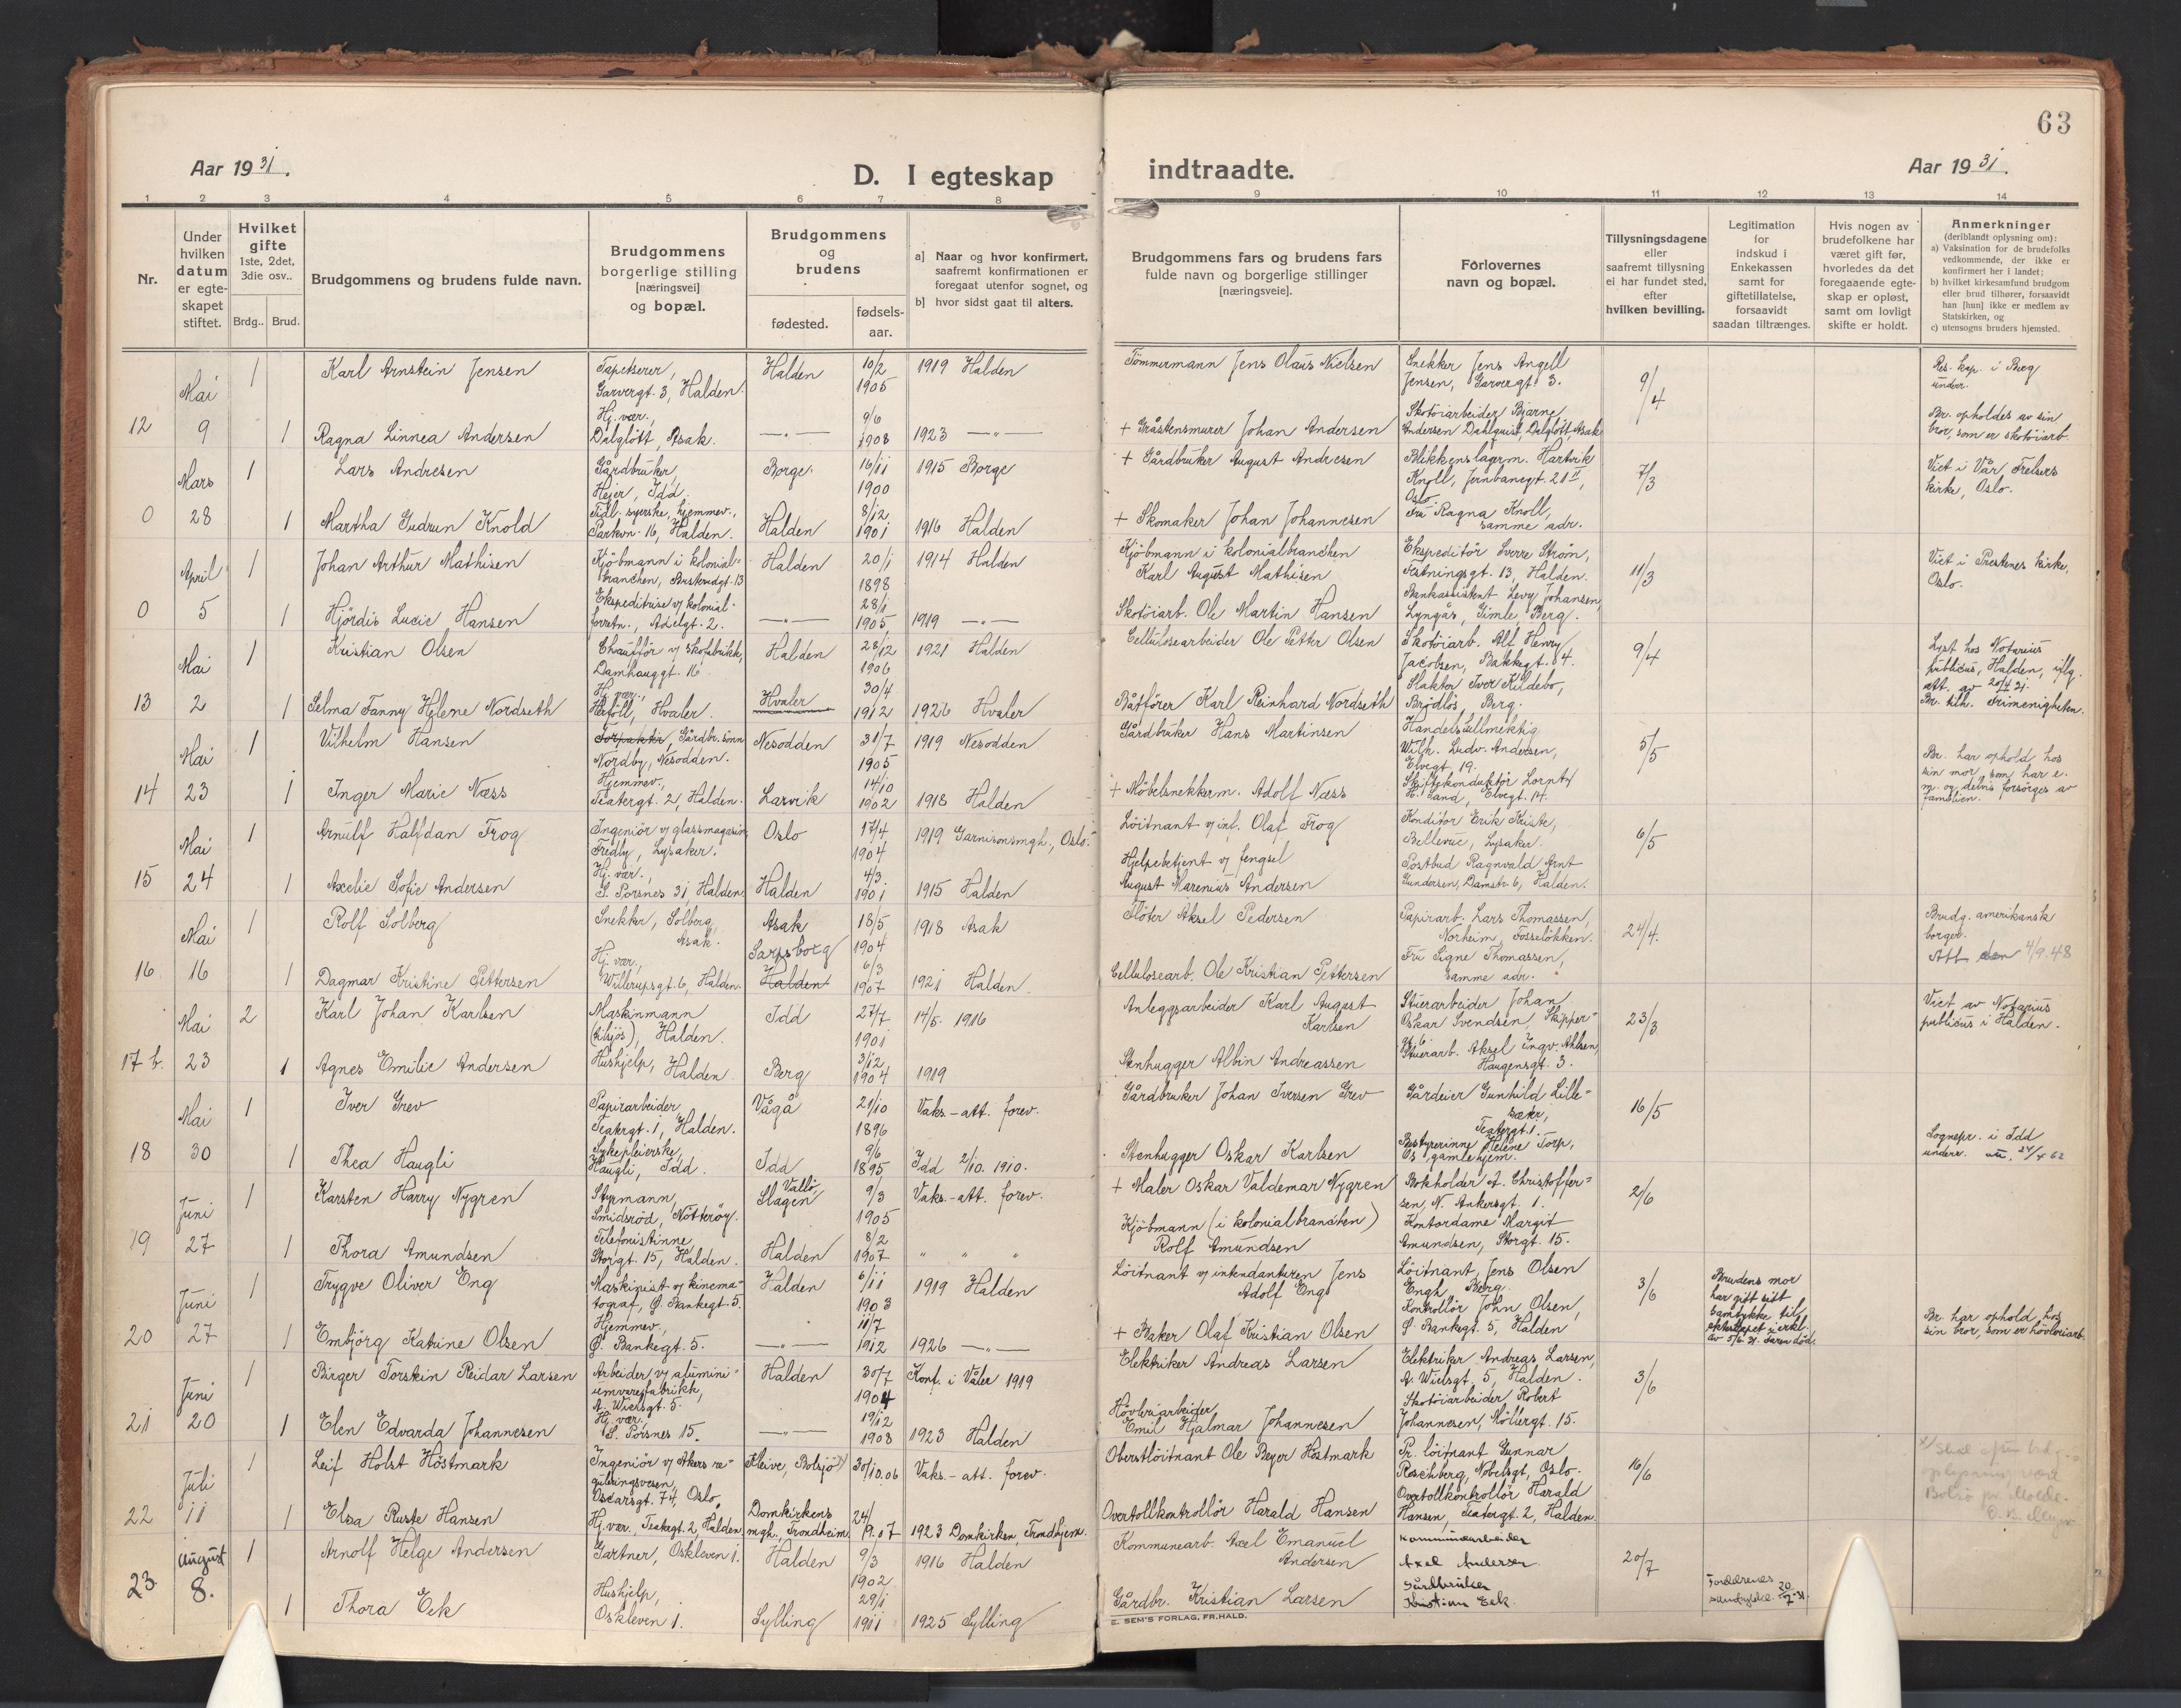 63
Aar 1931.
D. I egteskap indtraadte.
Aar 1931.
1 2 3 4 5 6 7 8 9 10 11 12 13 14
Nr.
Under hvilken datum er egteskapet stiftet.
Hvilket gifte 1ste, 2det, 3die osv..
Brdg.. Brud.
Brudgommens og brudens fulde navn.
Brudgommens borgerlige stilling [næringsvei] og bopæl.
Brudgommens og brudens
fødested.
fødsels-aar.
a] Naar og hvor konfirmert, saafremt konfirmationen er foregaat utenfor sognet, og
b] hvor sidst gaat til alters.
Brudgommens fars og brudens fars fulde navn og borgerlige stillinger [næringsveie].
Forlovernes navn og bopæl.
Tillysningsdagene eller saafremt tillysning ei har fundet sted, efter hvilken bevilling.
Legitimation for indskud i Enkekassen samt for giftetillatelse, forsaavidt saadan tiltrænges.
Hvis nogen av brudefolkene har været gift før, hvorledes da det foregaaende egteskap er opløst, samt om lovligt skifte er holdt.
Anmerkninger (deriblandt oplysning om):
a) Vaksination for de brudefolks vedkommende, der ikke er konfirmert her i landet;
b) hvilket kirkesamfund brudgom eller brud tilhører, forsaavidt han [hun] ikke er medlem av Statskirken, og
c) utensogns bruders hjemsted.
Mai 1 Karl Arnstein Jensen Tapetserer, Garvergt. 3, Halden. Halden 10/2 1905 1919 Halden Tømmermann Jens Olaus Nielsen Snekker Jens Angell Jensen, Garvergt. 3. 9/4 Res. kap. i Berg underr.
12 9 1 Ragna Linnea Andersen Hj. vær., Dalgløtt, Asak. —„— 9/6 1908 1923 —„— + Gråstensmurer Johan Andersen Skotøiarbeider Bjarne Andersen Dahlquist, Dalgløtt, Asak Br. opholdes av sin bror, som er skotøiarb.
Mars 1 Lars Andresen Gårdbruker, Hejer, Idd. Borge. 16/11 1900 1915 Borge + Gårdbruker August Andresen Blikkenslagerm. Hartvik Knoll, Jernbanegt. 21 II, Oslo. 7/3 Viet i Vår Frelsers kirke, Oslo.
0 28 1 Martha Gudrun Knold Tidl. syerske, hjemmev., Parkvn. 16, Halden. Halden 8/12 1901 1916 Halden + Skomaker Johan Johannesen Fru Ragna Knoll, samme adr.
April 1 Johan Arthur Mathisen Kjøbmann i kolonial-branchen, 13 Halden 20/1 1898 1914 Halden Kjøbmann i kolonialbranchen Karl August Mathisen Ekspeditør Sverre Strøm, Festningsgt. 13, Halden. 11/3 Viet i Prestenes kirke, Oslo.
0 5 1 Hjørdis Lucie Hansen Ekspeditrise v/ kolonial-forretn., Adelgt. 2. —„— 28/1 1905 1919 —„— Skotøiarb. Ole Martin Hansen Bankassistent Levy Johansen, Lyngås, Gimle, Berg.
Mai 1 Kristian Olsen Chauffør v/ skofabrikk, Damhauggt. 16 Halden 28/12 1906 1921 Halden Cellulosearbeider Ole Petter Olsen Skotøiarb. Alf Henry Jacobsen, Bakkegt. 4. 9/4 Lyst hos Notarius publicus, Halden, iflg. att. av 20/4 31.
13 2 1 Selma Fanny Helene Nordseth Hj. vær., Herføll, Hvaler. Hvaler 30/4 1912 1926 Hvaler Båtfører Karl Reinhard Nordseth Slakter Iver Kildebo, Brødløs, Berg. Br. tilh. Frimenigheten.
Mai 1 Vilhelm Hansen Forpakter, Gårdbr. sønn Nordby, Nesodden. Nesodden 31/7 1905 1919 Nesodden Gårdbruker Hans Martinsen Handelsfullmektig Wilh. Ludv. Andersen, Elvegt. 19. 5/5
14 23 1 Inger Marie Næss Hjemmev., Teatergt. 2, Halden. Larvik 14/10 1902 1918 Halden + Møbelsnekkerm. Adolf Næss Skiftekonduktør Lorntz H. Sand, Elvegt. 14. Br. har ophold hos sin mor, som har e. m. og delvis forsørges av familien.
Mai 1 Arnulf Halfdan Frog Ingeniør v/ glassmagasin, Fredly, Lysaker. Oslo 17/4 1904 1919 Garnisonsmgh., Oslo. Løitnant v/ inf. Olaf Frog Konditor Erik Kriste, Bellevue, Lysaker. 6/5
15 24 1 Axelie Sofie Andersen Hj. vær., S. Porsnes 31, Halden. Halden 4/3 1901 1915 Halden Hjelpebetjent v/ fengsel August Marenius Andersen Postbud Ragnvald Arnt Gundersen, Damstr. 6, Halden.
Mai 1 Rolf Solberg Snekker, Solberg, Asak. Asak 18/5 1904 1918 Asak Fløter Aksel Pedersen Papirarb. Lars Thomassen, Norheim, Fosseløkken. 24/4. Brudg. amerikansk borger. Att den 4/9.48
16 16 1 Dagmar Kristine Pettersen Hj. vær., Willerupsgt. 6, Halden. Sarpsborg Halden 6/3 1907 1921 Halden. Cellulosearb. Ole Kristian Pettersen Fru Signe Thomassen, samme adr.
Mai 2 Karl Johan Karlsen Maskinmann (tilsjøs), Halden. Idd 27/7 1901 14/5. 1916 Anleggsarbeider Karl August Karlsen Stuerarbeider Johan Oskar Svendsen, Skipper-gt. 6. 23/3 Viet av Notarius publicus i Halden.
17 b. 23 1 Agnes Emilie Andersen Hushjelp, Halden. Berg 3/12 1904 1919 Stenhugger Albin Andreassen Stuerarb. Aksel Ingv. Ahlsen, Haugensgt. 3.
Mai 1 Iver Grev Papirarbeider, Teatergt. 1, Halden. Vågå 21/10 1896 Vaks.-att. forev. Gårdbruker Johan Iversen Grev Gårdeier Gunhild Lille-sæter, Teatergt. 1. 16/5
18 30 1 Thea Haugli Sykepleierske, Haugli, Idd. Idd 9/6 1895 Idd 2/10. 1910. Stenhugger Oskar Karlsen Bestyrerinne Helene Torp, Os gamlehjem. Sognepr. i Idd underr. att. 24/4 62
Juni 1 Karsten Harry Nygren Styrmann, Smidsrød, Nøtterøy. Vallø, Slagen 9/3 1905 Vaks.-att. forev. + Maler Oskar Valdemar Nygren Bokholder A. Christoffer-sen, N. Ankersgt. 1. 2/6
19 27 1 Thora Amundsen Telefonistinne, Storgt. 15, Halden. Halden 8/2 1907 „ „ „ Kjøbmann (i kolonialbranchen) Rolf Amundsen Kontordame Margit Amundsen, Storgt. 15.
Juni 1 Trygve Oliver Eng Maskinist v/ kinema-tograf, Ø. Bankegt. 5. Halden 6/11 1903 1919 Halden Løitnant v/ intendanturen Jens Adolf Eng Løitnant Jens Olsen Engh, Berg. 3/6 Brudens mor har gitt sitt samtykke til ekteskapet i erkl. av 5/6. 31. Faren død.
20 27 1 Embjørg Katrine Olsen Hjemmev., Ø. Bankegt. 5. —„— 11/7 1912 1926 —„— + Baker Olaf Kristian Olsen Kontrollør John Olsen, Ø. Bankegt. 5, Halden Br. har ophold hos sin bror, som er høvleriarb.
Juni 1 Birger Torstein Reidar Larsen Arbeider v/ alumini-umvarefabrikk, A. Wielsgt. 5. Halden 30/7 1904 Konf. i Våler 1919 Elektriker Andreas Larsen Elektriker Andreas Larsen, A. Wielsgt. 5, Halden. 3/6
21 20 1 Elen Edvarda Johannesen Hj. vær., S. Porsnes 15. —„— 19/12 1908 1923 Halden Høvleriarbeider Emil Hjalmar Johannesen Skotøiarbeider Robert Johannesen, Møllergt. 15.
Juli 1 Leif Holst Høstmark Ingeniør v/ Akers re-guleringsvesen, Oscarsgt. 74, Oslo. Kleive, Bolsjø x) 30/10.06 Vaks.-att. forev. Oberstløitnant Ole Beyer Høstmark Pr. løitnant Gunnar Roschberg, Nobelsgt, Oslo. 16/6 x) Skal efter brdg. oplysning være Bolsø pr. Molde.
22 11 1 Elsa Ruste Hansen Hj. vær. Teatergt. 2, Halden. Domkirkens mgh., Trondheim. 24/9.07 1923 Domkirken, Trondhjem. Overtollkontrollør Harald Hansen Overtollkontrollør Harald Hansen, Teatergt. 2, Halden.
August 1 Arnolf Helge Andersen Gartner, Oskleven 1. Halden 9/3 1902 1916 Halden Kommunearb. Axel Emanuel Andersen Kommunearbeider Axel Andersen. 20/7
23 8. 1 Thora Eek Hushjelp, Oskleven 1. Sylling 29/1 1911 1925 Sylling Gårdbr. Kristian Larsen Gårdbruker Kristian Eek. Foreldrenes samtykke 20/7-31.
E. SEM'S FORLAG, FR.HALD.